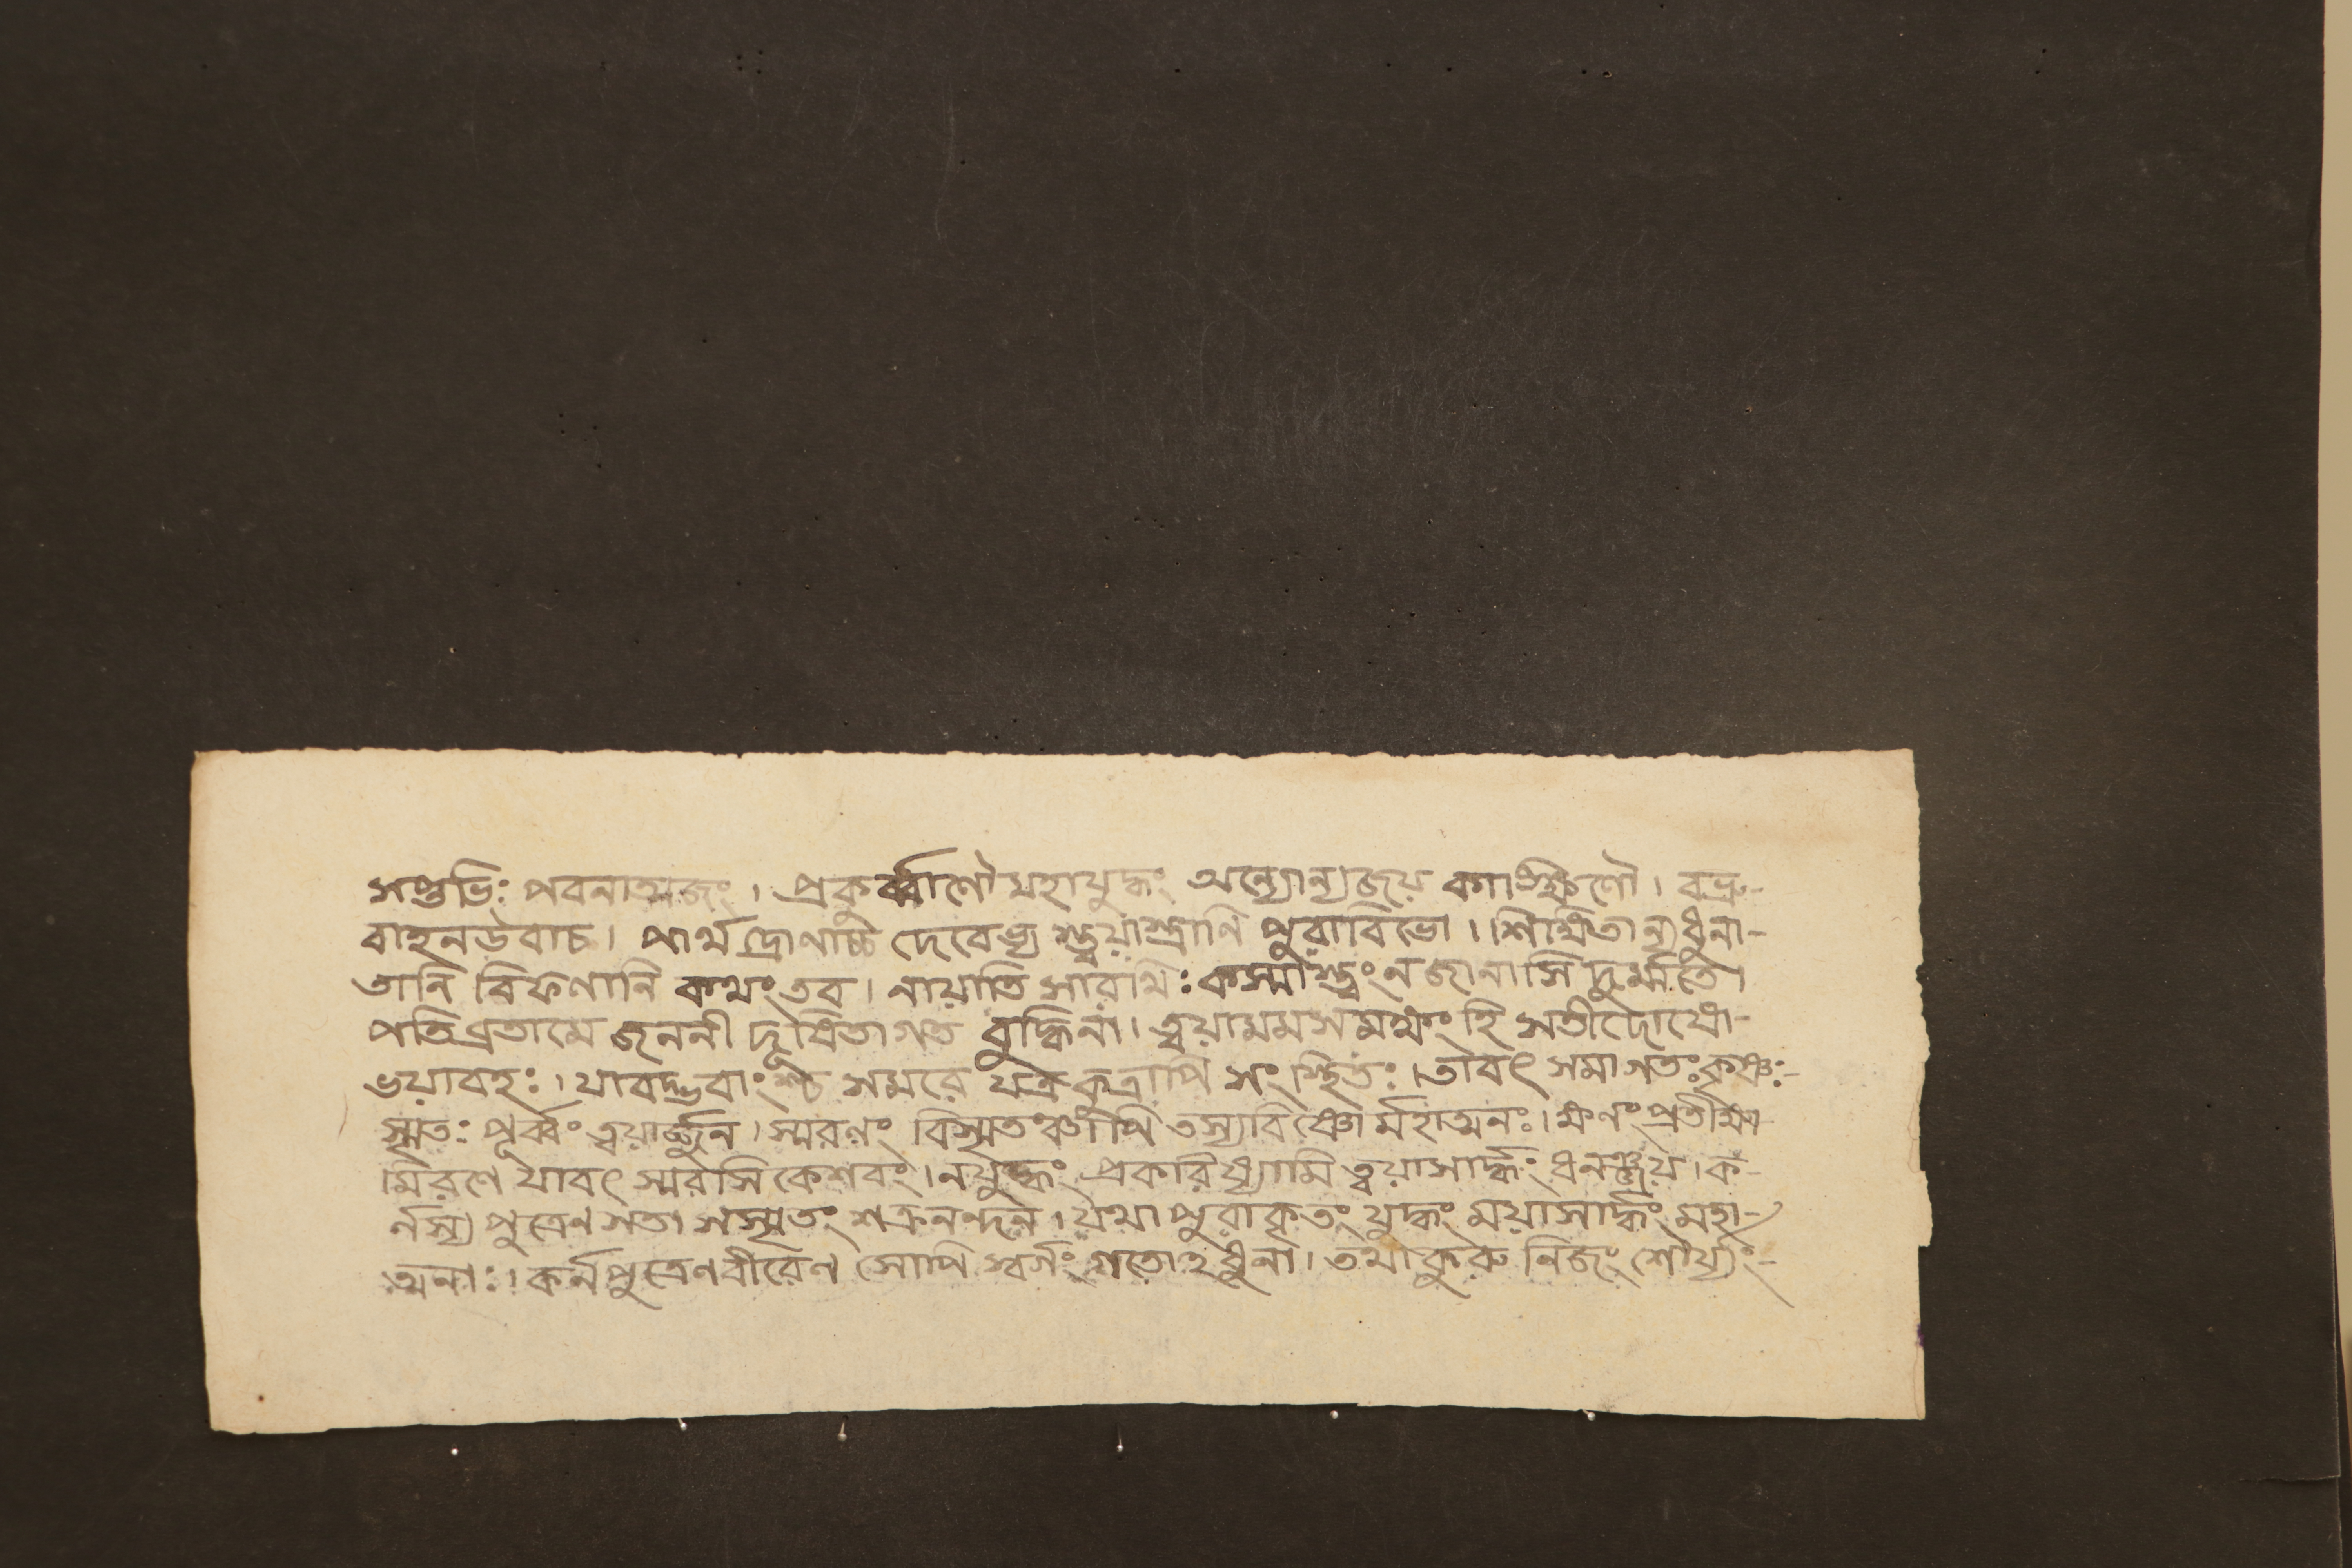 সপ্তভিঃ পবনাত্মজং। প্রকুর্ব্বাণৌ মহাযুদ্ধং অন্যোন্যজয় কাাঙ্ক্ষিণৌ। বভ্রু-
বাহনউবাচ। পার্থ দ্রোণাচ্চ দেবেভ্য স্ত্বয়াস্ত্রাণি পুরাবিভো।। শিক্ষিতান্যধুনা-
তানি বিফণানি কথংতব। নায়াতি সারথিঃ কস্মাত্ত্বং নজানাসি দুর্ম্মতে।
পতিব্রতামে জননী দূষিতাগত বুদ্ধিনা। ত্বয়ামমসমক্ষং হি সতীদোষো-
ভয়াবহঃ। যাবদ্ভবাংশ্চ সমরে যত্রকুত্রাপি সংস্থিতঃ। তাবৎ সমাগতঃকৃষ্ণঃ-
স্মৃতঃ পূর্ব্বং ত্বয়ার্জ্জুন। স্মরণং বিস্মৃতঞ্চাপি তস্যবিষ্ণো র্মহাত্মনঃ। ক্ষণং প্রতীক্ষা-
মিরণে যাবৎ স্মরসি কেশবং। নযুদ্ধং প্রকরিষ্যামি ত্বয়াসার্দ্ধং ধনঞ্জয়। ক-
র্নস্য পুত্রেণ সতা সস্মৃতং শক্রনন্দন। যথা পুরাকৃতং যুদ্ধং ময়াসার্দ্ধং মহা-
ত্মনাঃ। কর্নপুত্রেণবীরেণ সোপি স্বর্গং গতোঽধুনা। তথা কুরু নিজং শৌর্য্যং-